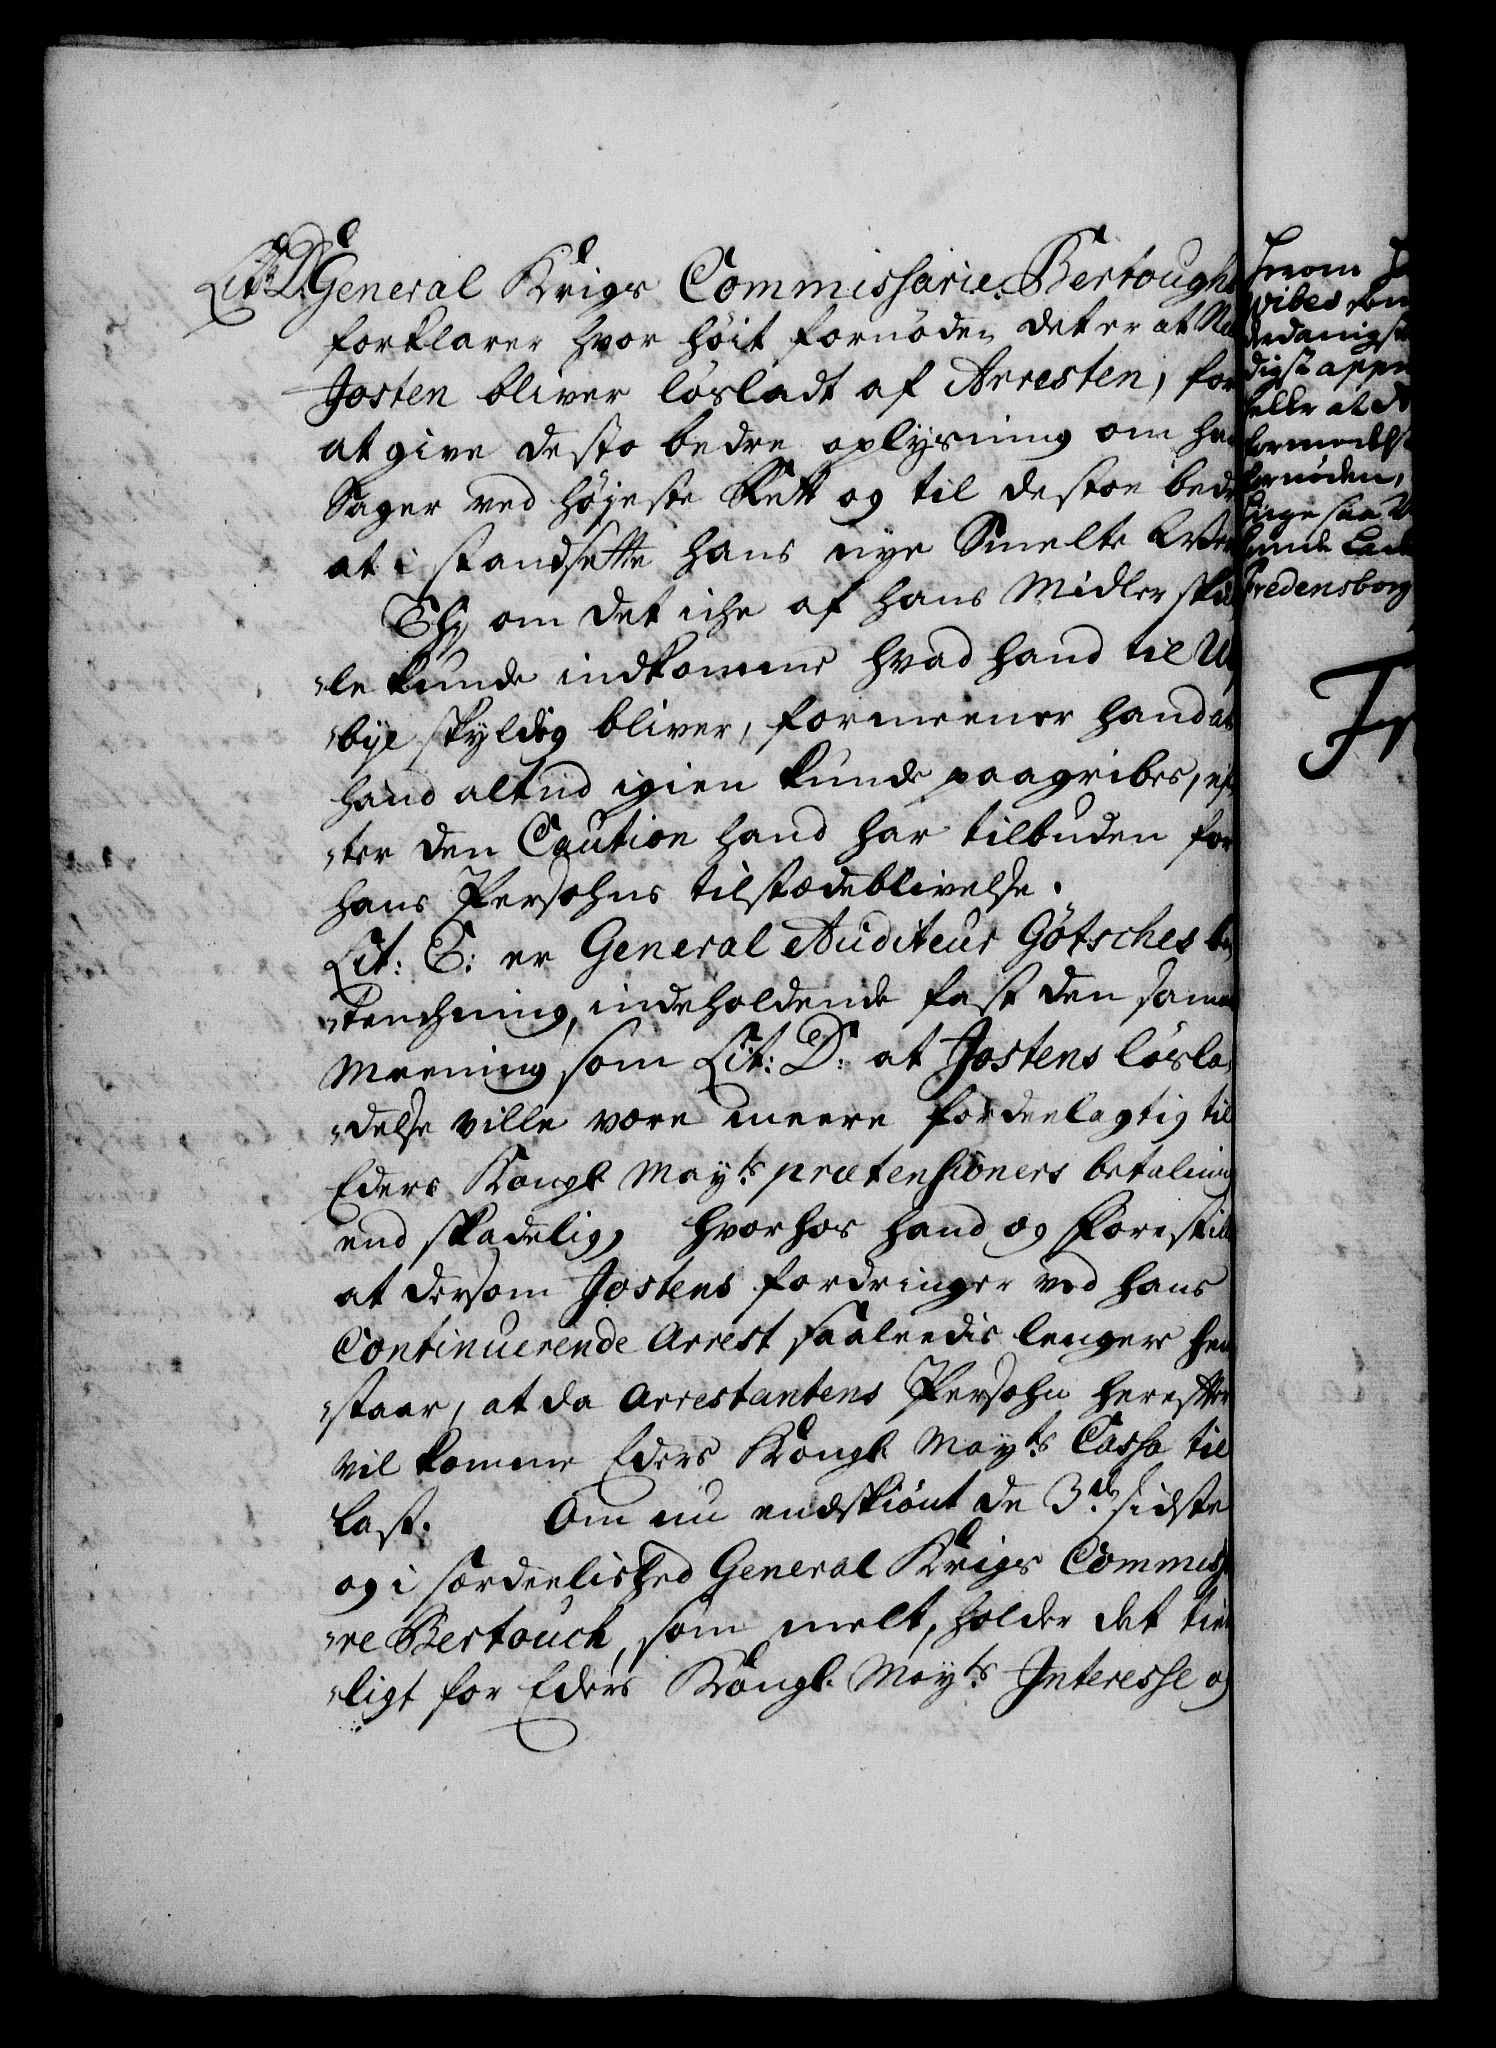 Lit: D: General Krigs Commissarie Bertoughs
forklarer hvor höit fornöden det er at
Josten bliver lösladt af Arresten, for
at give desto bedre oplysning om
Sager ved höjeste Rett og til destoe bedr
at i standsette hans nye Smelte
om det iche af hans Midler
"le kunde indkomme hvad hand til
"bye skyldig bliver, formeener hand at
hand altiid igien kunde paagribes, ef
"ter den Caution hand har tilbuden for
hans Persohns tilstædeblivelse.
Lit: E: er General Auditeur Götsches be
"tenchning, indeholdende fast den samme
Meening som Lit: D: at Jostens lösla
"delse ville være meere fordeelagtig til
Eders Kongl: Mayts prætensioners betaling
end skadelig, hvorhos hand og forestill
at dersom Jostens fordringer ved hans
Continuerende Arrest saaleedis lenger hen
"staar, at da Arrestantens Persohn herefter
vil komme Eders Kongl: Mayts Cassa til
last. Om nu endskiönt de 3de sidste
og i særdeelished General Krigs Commissa
"re Bertouch, som melt, holder det tien
"ligt for Eders Kongl: Mayts Interesse og
vibes som
digst appr
eller at
formedelst
fornöden,
Fredensborg
Fr